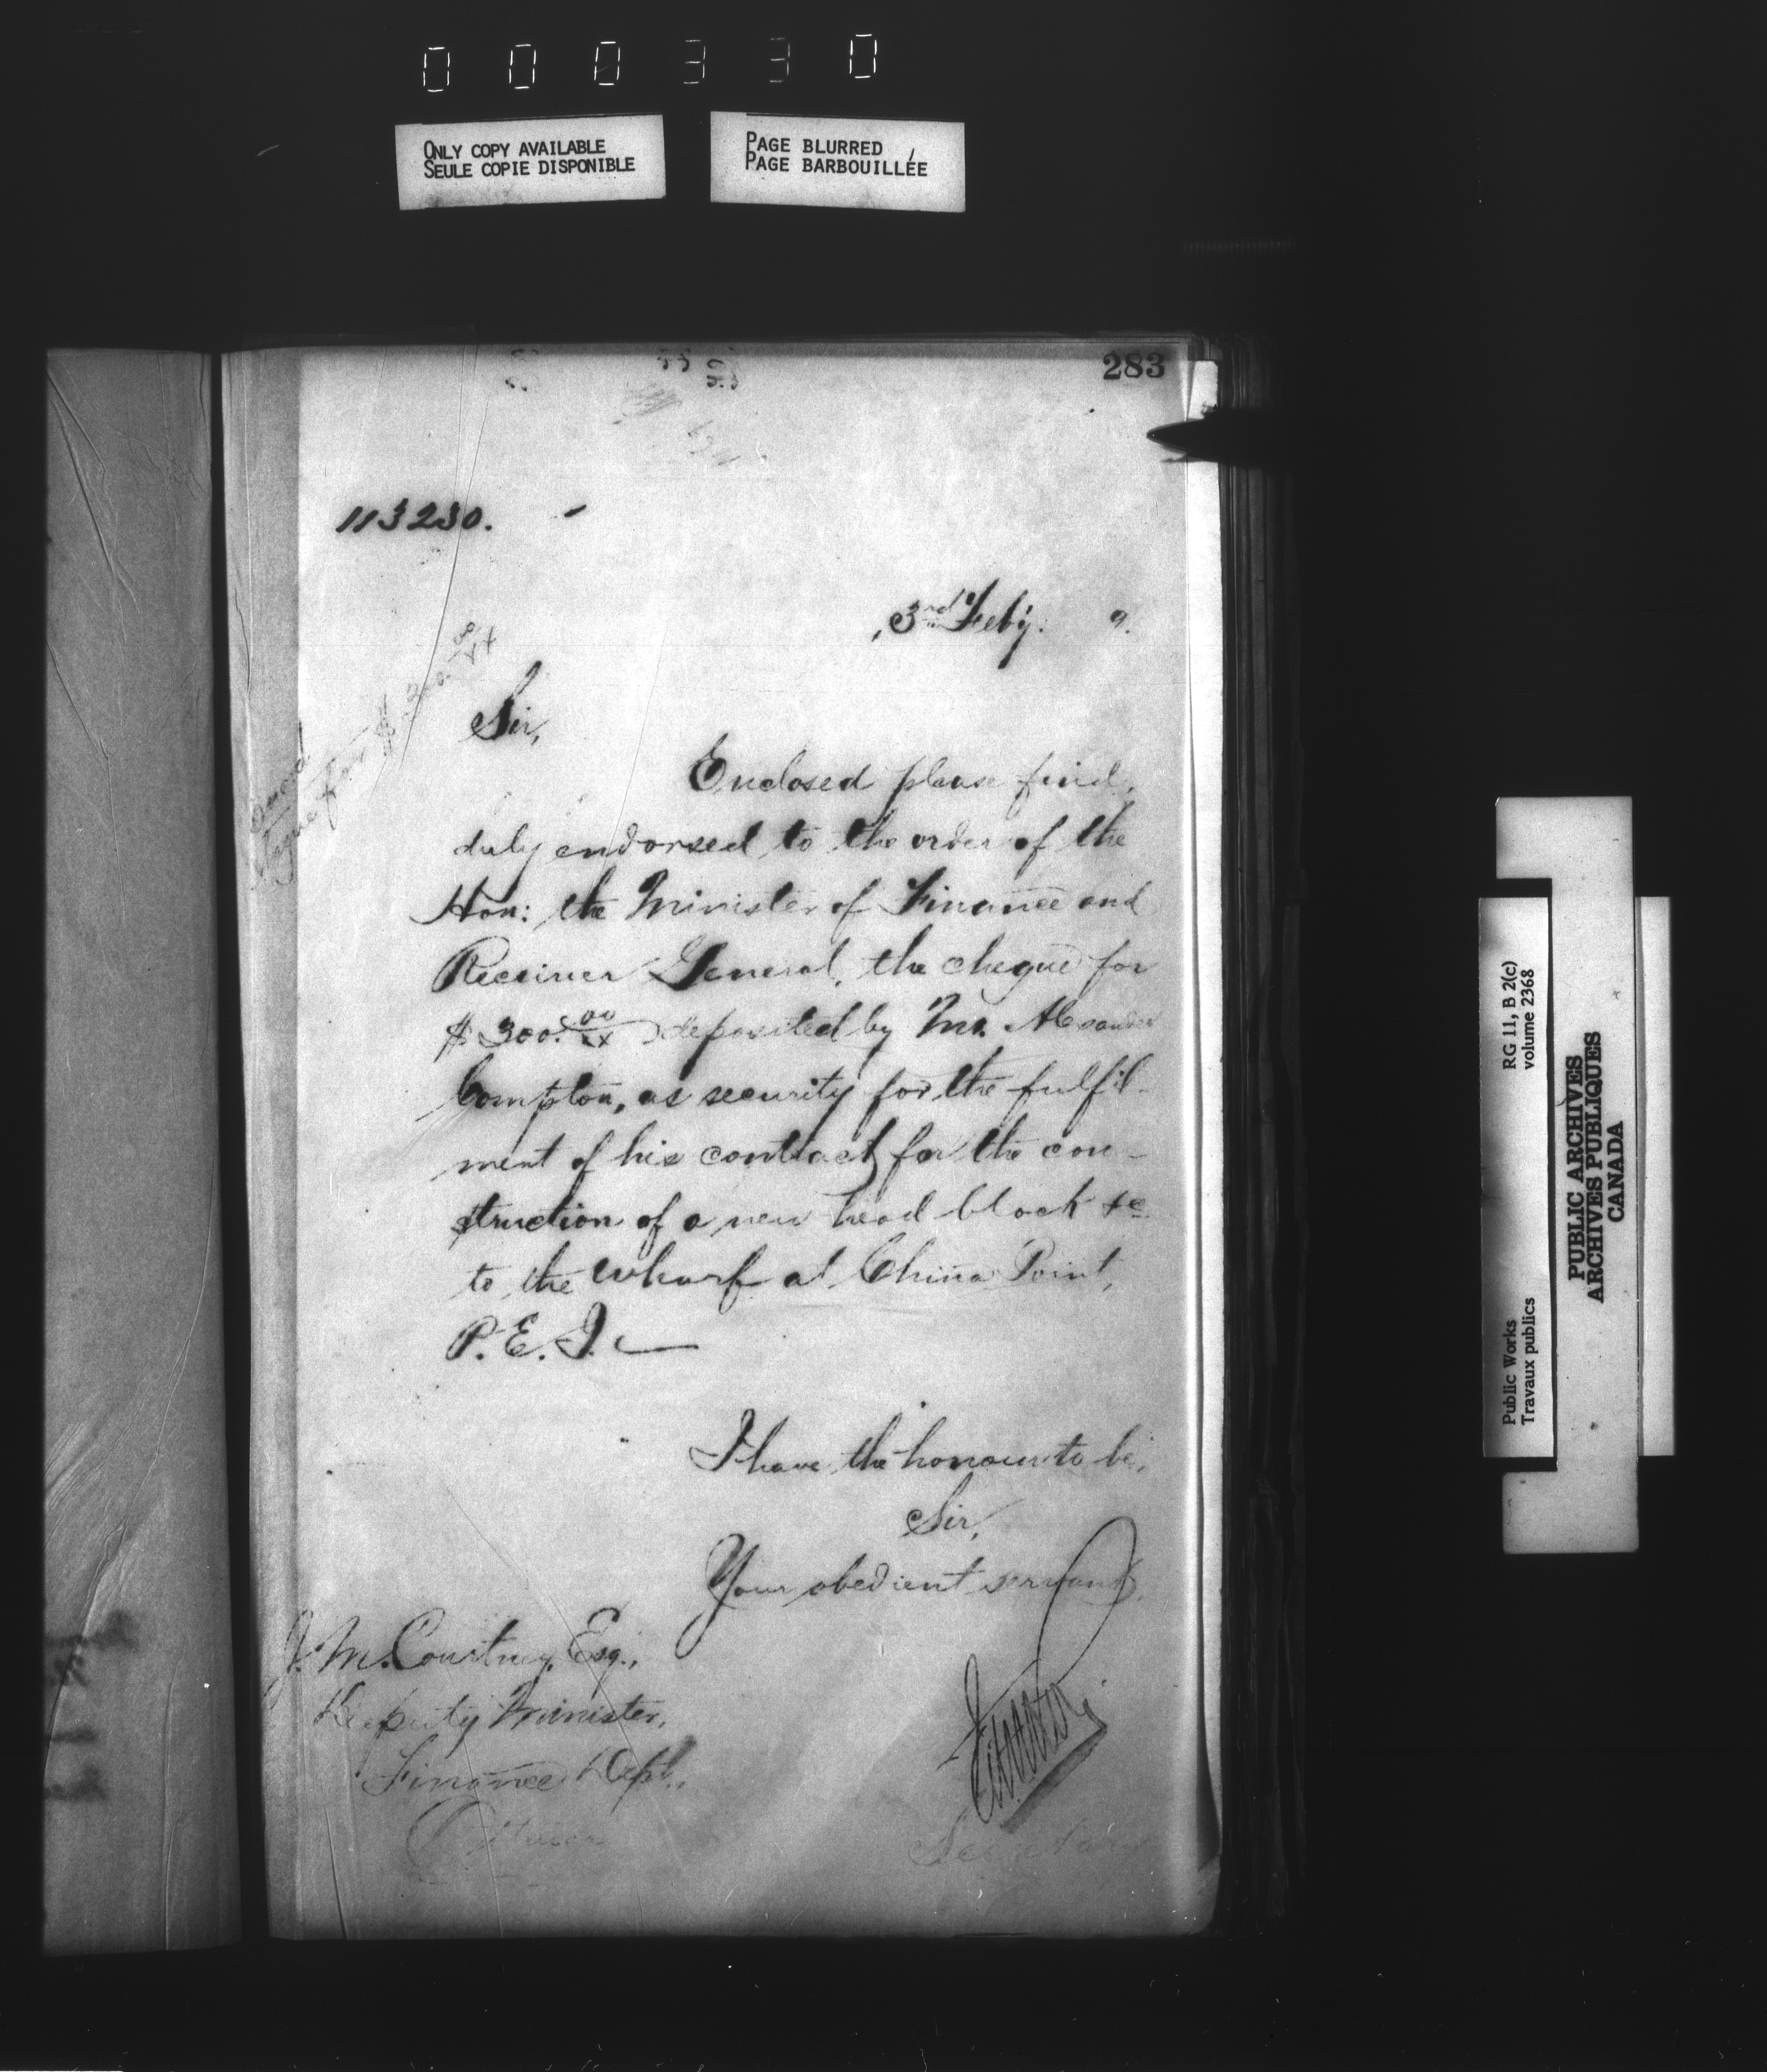 000330
ONLY COPY AVAILABLE
SEULE COPIE DISPONIBLE
PAGE BLURRED
PAGE BARBOUILLÉE
283
113230.
3rd Feby. 9.
Sir,
Enclosed please find,
duly endorsed to the order of the
Hon: the Minister of Finance and
Receiver General, the cheque for
$300.00/xx deposited by Mr. Alexander
Compton, as security for the fulfil-
ment of his contract for the con-
struction of a new head block &c
to the wharf at China Point,
P.E.I. —
I have the honour to be,
Sir,
Your obedient servant,
J. M. Courtney, Esq.,
Deputy Minister,
Finance Dept.,
Ottawa
Secretary
for $300.00/xx
RG 11, B 2(c)
volume 2368
Public Works
Travaux publics
PUBLIC ARCHIVES
ARCHIVES PUBLIQUES
CANADA